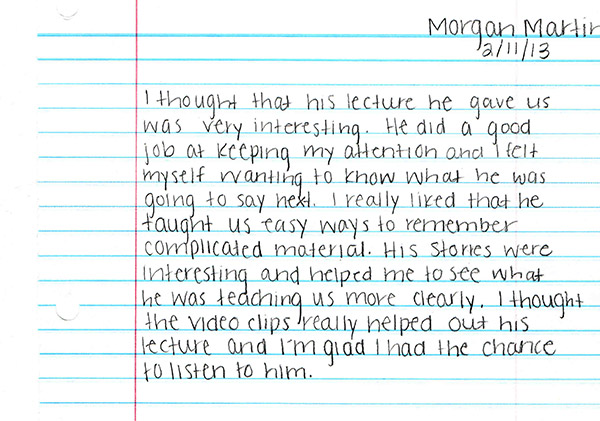 Morgan Martin
2/11/13
I thought that his lecture he gave us
was very interesting. He did a good
job at keeping my attention and I felt
myself wanting to know what he was
going to say next. I really liked that he
taught us easy ways to remember
complicated material. His stories were
interesting and helped me to see what
he was teaching us more clearly. I thought
the video clips really helped out his
lecture and I'm glad I had the chance
to listen to him.